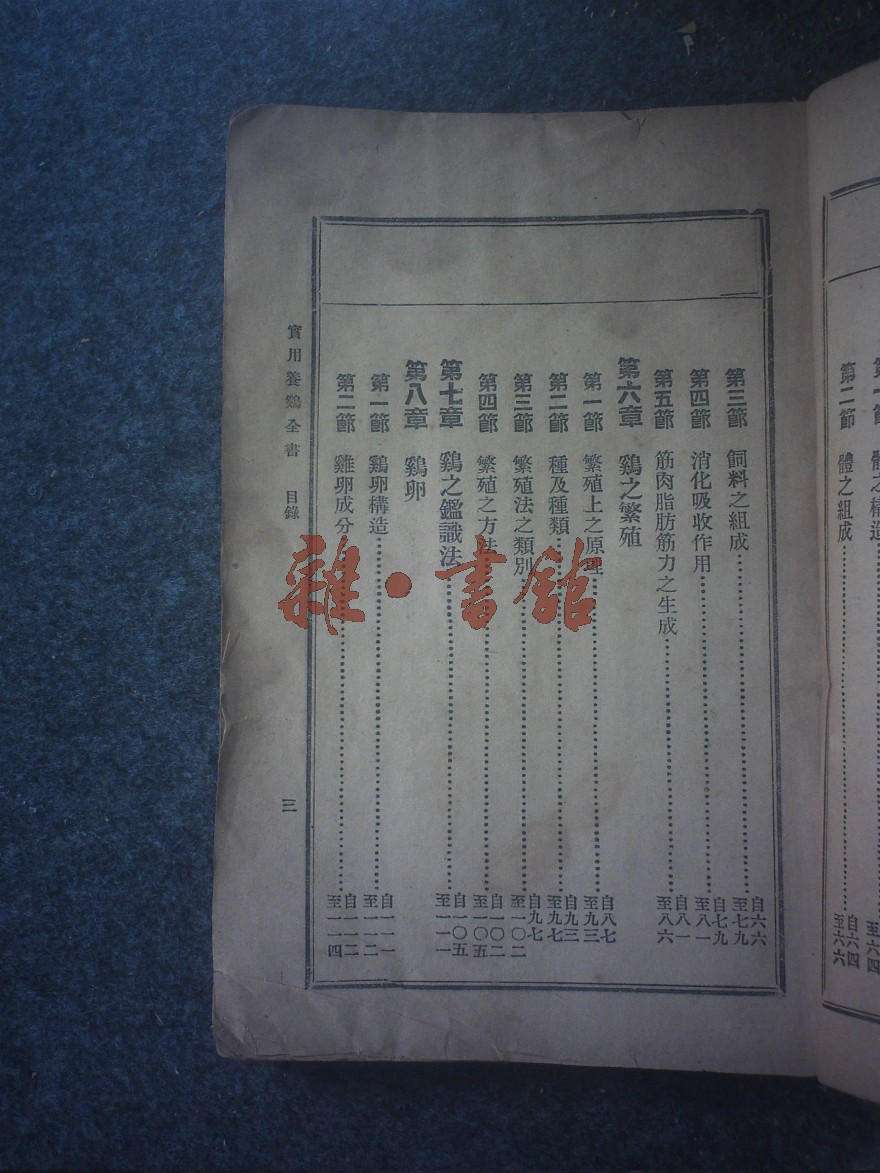 第一節 體之構造 至六四
第二節 體之組成……自六四至六六
第三節 飼料之組成……自六六至七九
第四節 消化吸收作用……自七九至八一
第五節 筋肉脂肪筋力之生成……自八一至八六
第六章 鷄之繁殖
第一節 繁殖上之原理……自八七至九三
第二節 種及種類……自九三至九七
第三節 繁殖法之類別……自九七至一〇二
第四節 繁殖之方法……自一〇二至一〇五
第七章 鷄之鑑識法……自一〇五至一一一
第八章 鷄卵
第一節 鷄卵構造……自一一一至一一二
第二節 雞卵成分……自一一二至一一四
實用養鷄全書 目錄 三
雜·書館